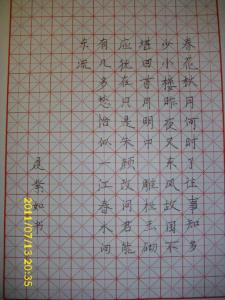 春花秋月何时了往事知多
少小楼昨夜又东风故国不
堪回首月明中 雕栏玉砌
应犹在只是朱颜改问君能
有几多愁恰似一江春水向
东流
如书
2011/07/13 20:35